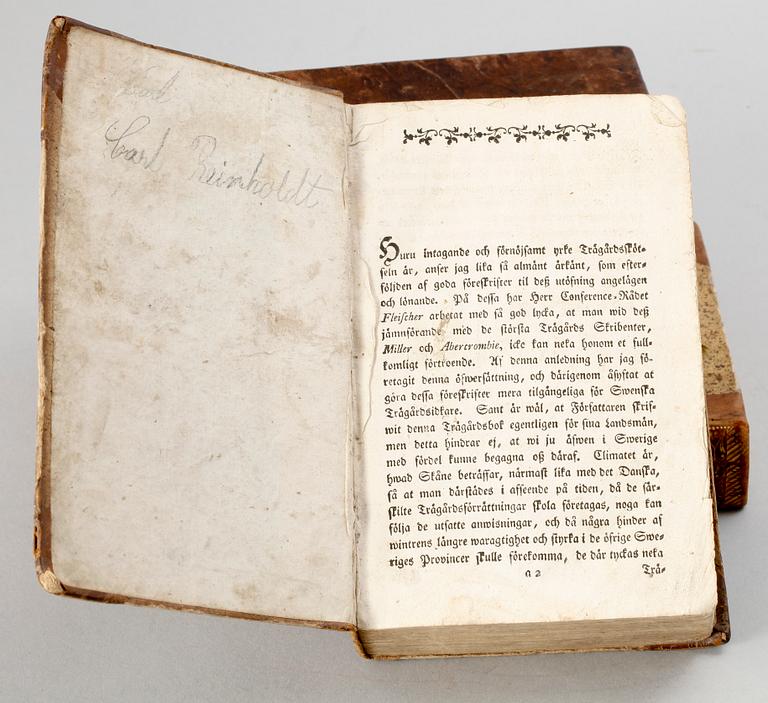 Carl Reinholdt
Huru intagande och förnöjsamt yrke Trägårdssköt-
seln är, anser jag lika så almänt ärkänt, som efter-
följden af goda föreskrifter til deß utöfning angelägen
och lönande. På dessa har Herr Conference-Rådet
Fleischer arbetat med så god lycka, at man wid deß
jämnförande med de största Trägårds Skribenter,
Miller och Abercrombie, icke kan neka honom et full-
komligt förtroende. Af denna anledning har jag fö-
retagit denna öfwersättning, och därigenom åsyftat at
göra dessa föreskrifter mera tilgängeliga för Swenska
Trägårdsidkare. Sant är wäl, at Författaren skrif-
wit denna Trägårdsbok egentligen för sina Landsmän,
men detta hindrar ej, at wi ju äfwen i Swerige
med fördel kunne begagna oß däraf. Climatet är,
hwad Skåne beträffar, närmast lika med det Danska,
så at man därstädes i afseende på tiden, då de sär-
skilte Trägårdsförrättningar skola företagas, noga kan
följa de utsatte anwisningar, och då några hinder af
wintrens längre waragtighet och styrka i de öfrige Swe-
riges Provincer skulle förekomma, de där tyckas neka
a 2 Trä-